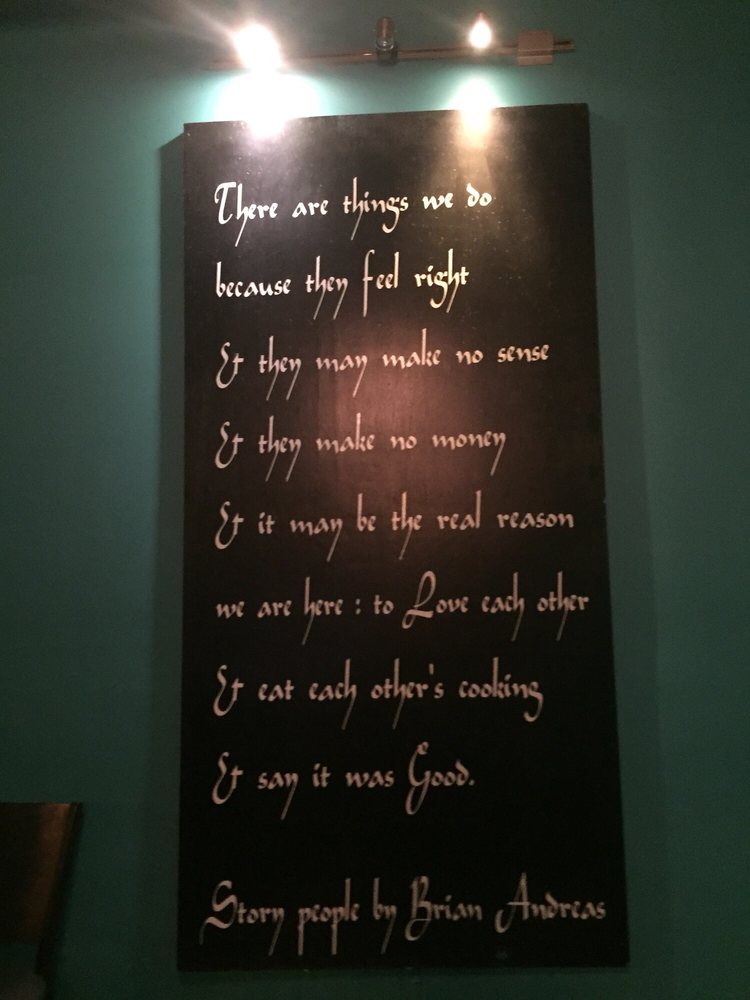 There are things we do
because they feel right
& they may make no sense
& they make no money
& it may be the real reason
we are here : to Love each other
& eat each other's cooking
& say it was Good.
Story people by Brian Andreas